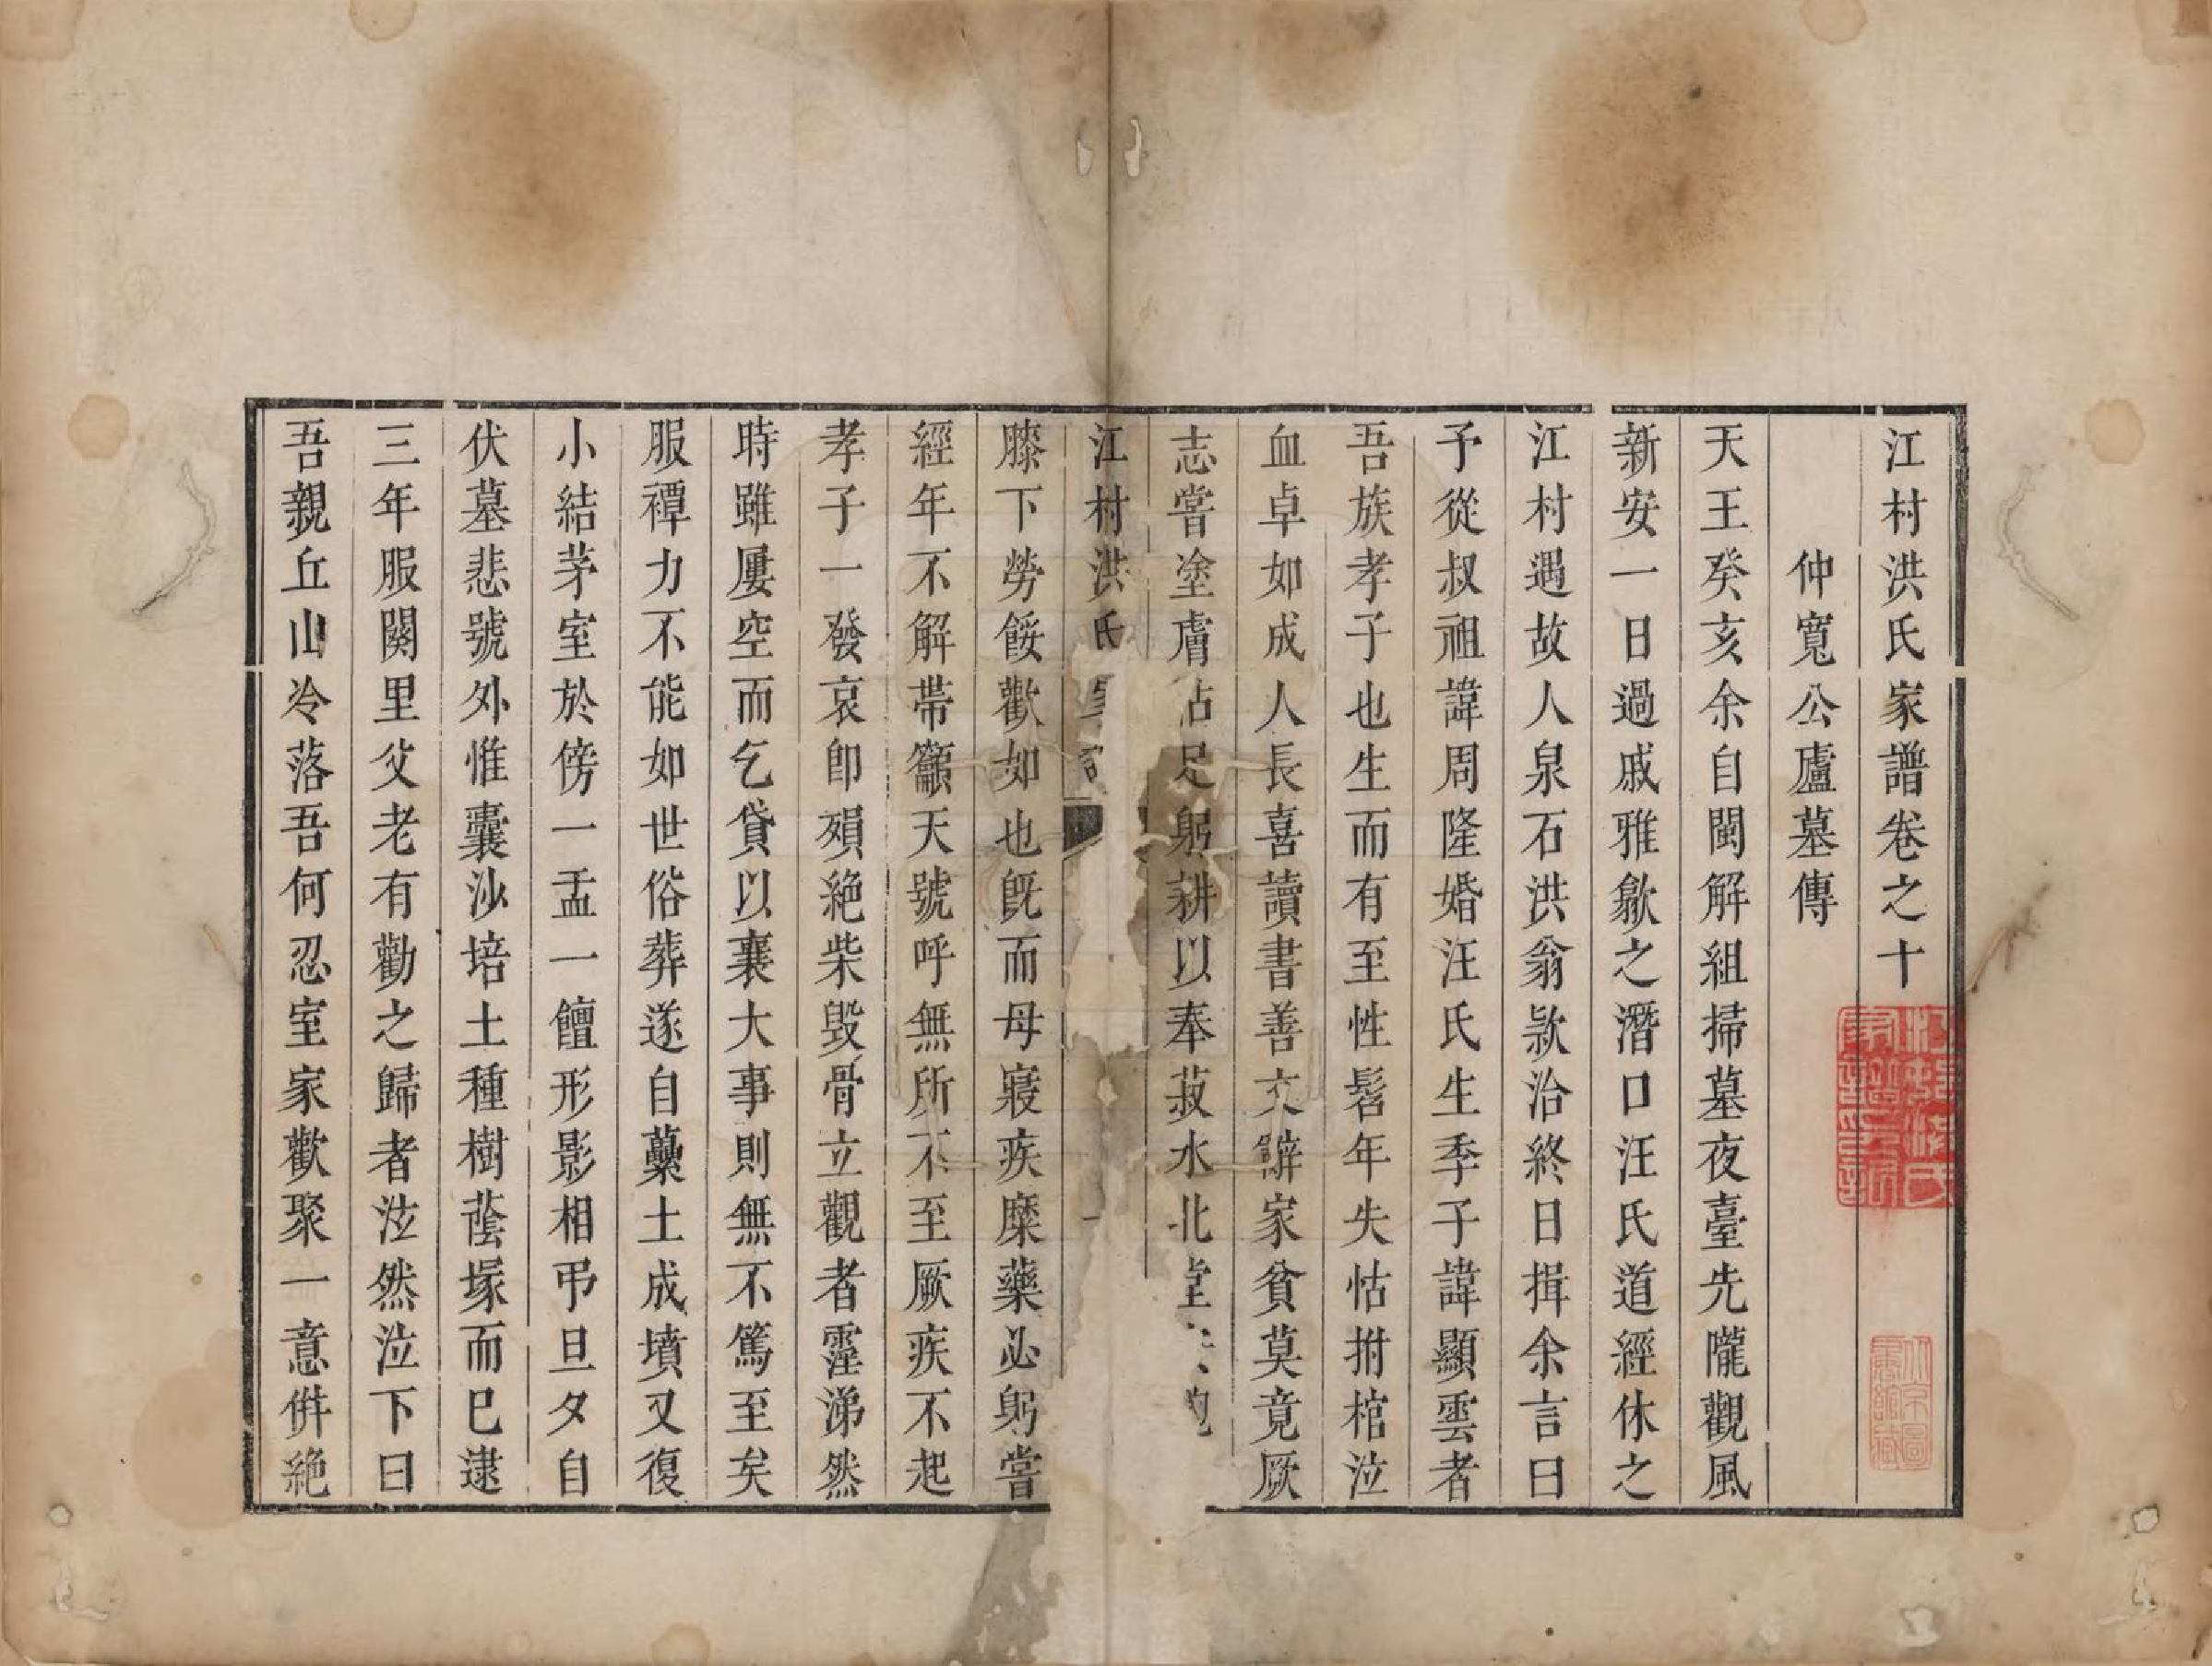 江村洪氏家譜卷之十
仲寬公廬墓傳
天王癸亥余自閩解組掃墓夜臺先隴觀風
新安一日過戚雅歙之潛口汪氏道經休之
江村遇故人泉石洪翁款洽終日揖余言曰
予從叔祖諱周隆婚汪氏生季子諱顯雲者
吾族孝子也生而有至性髫年失怙拊棺泣
血卓如成人長喜讀書善文辭家貧莫竟厥
志嘗塗膚沾足躬耕以奉菽水北堂
江村洪氏 一
膝下勞餒歡如也旣而母寢疾糜藥必躬嘗
經年不解帶籲天號呼無所不至厥疾不起
孝子一發哀卽殞絶柴毀骨立觀者霪涕然
時雖屢空而乞貸以襄大事則無不篤至矣
服禫力不能如世俗葬遂自虆土成墳又復
小結茅室於傍一盂一饘形影相弔旦夕自
伏墓悲號外惟囊沙培土種樹蔭塚而已逮
三年服闋里父老有勸之歸者泫然泣下曰
吾親丘山冷落吾何忍室家歡聚一意倂絶